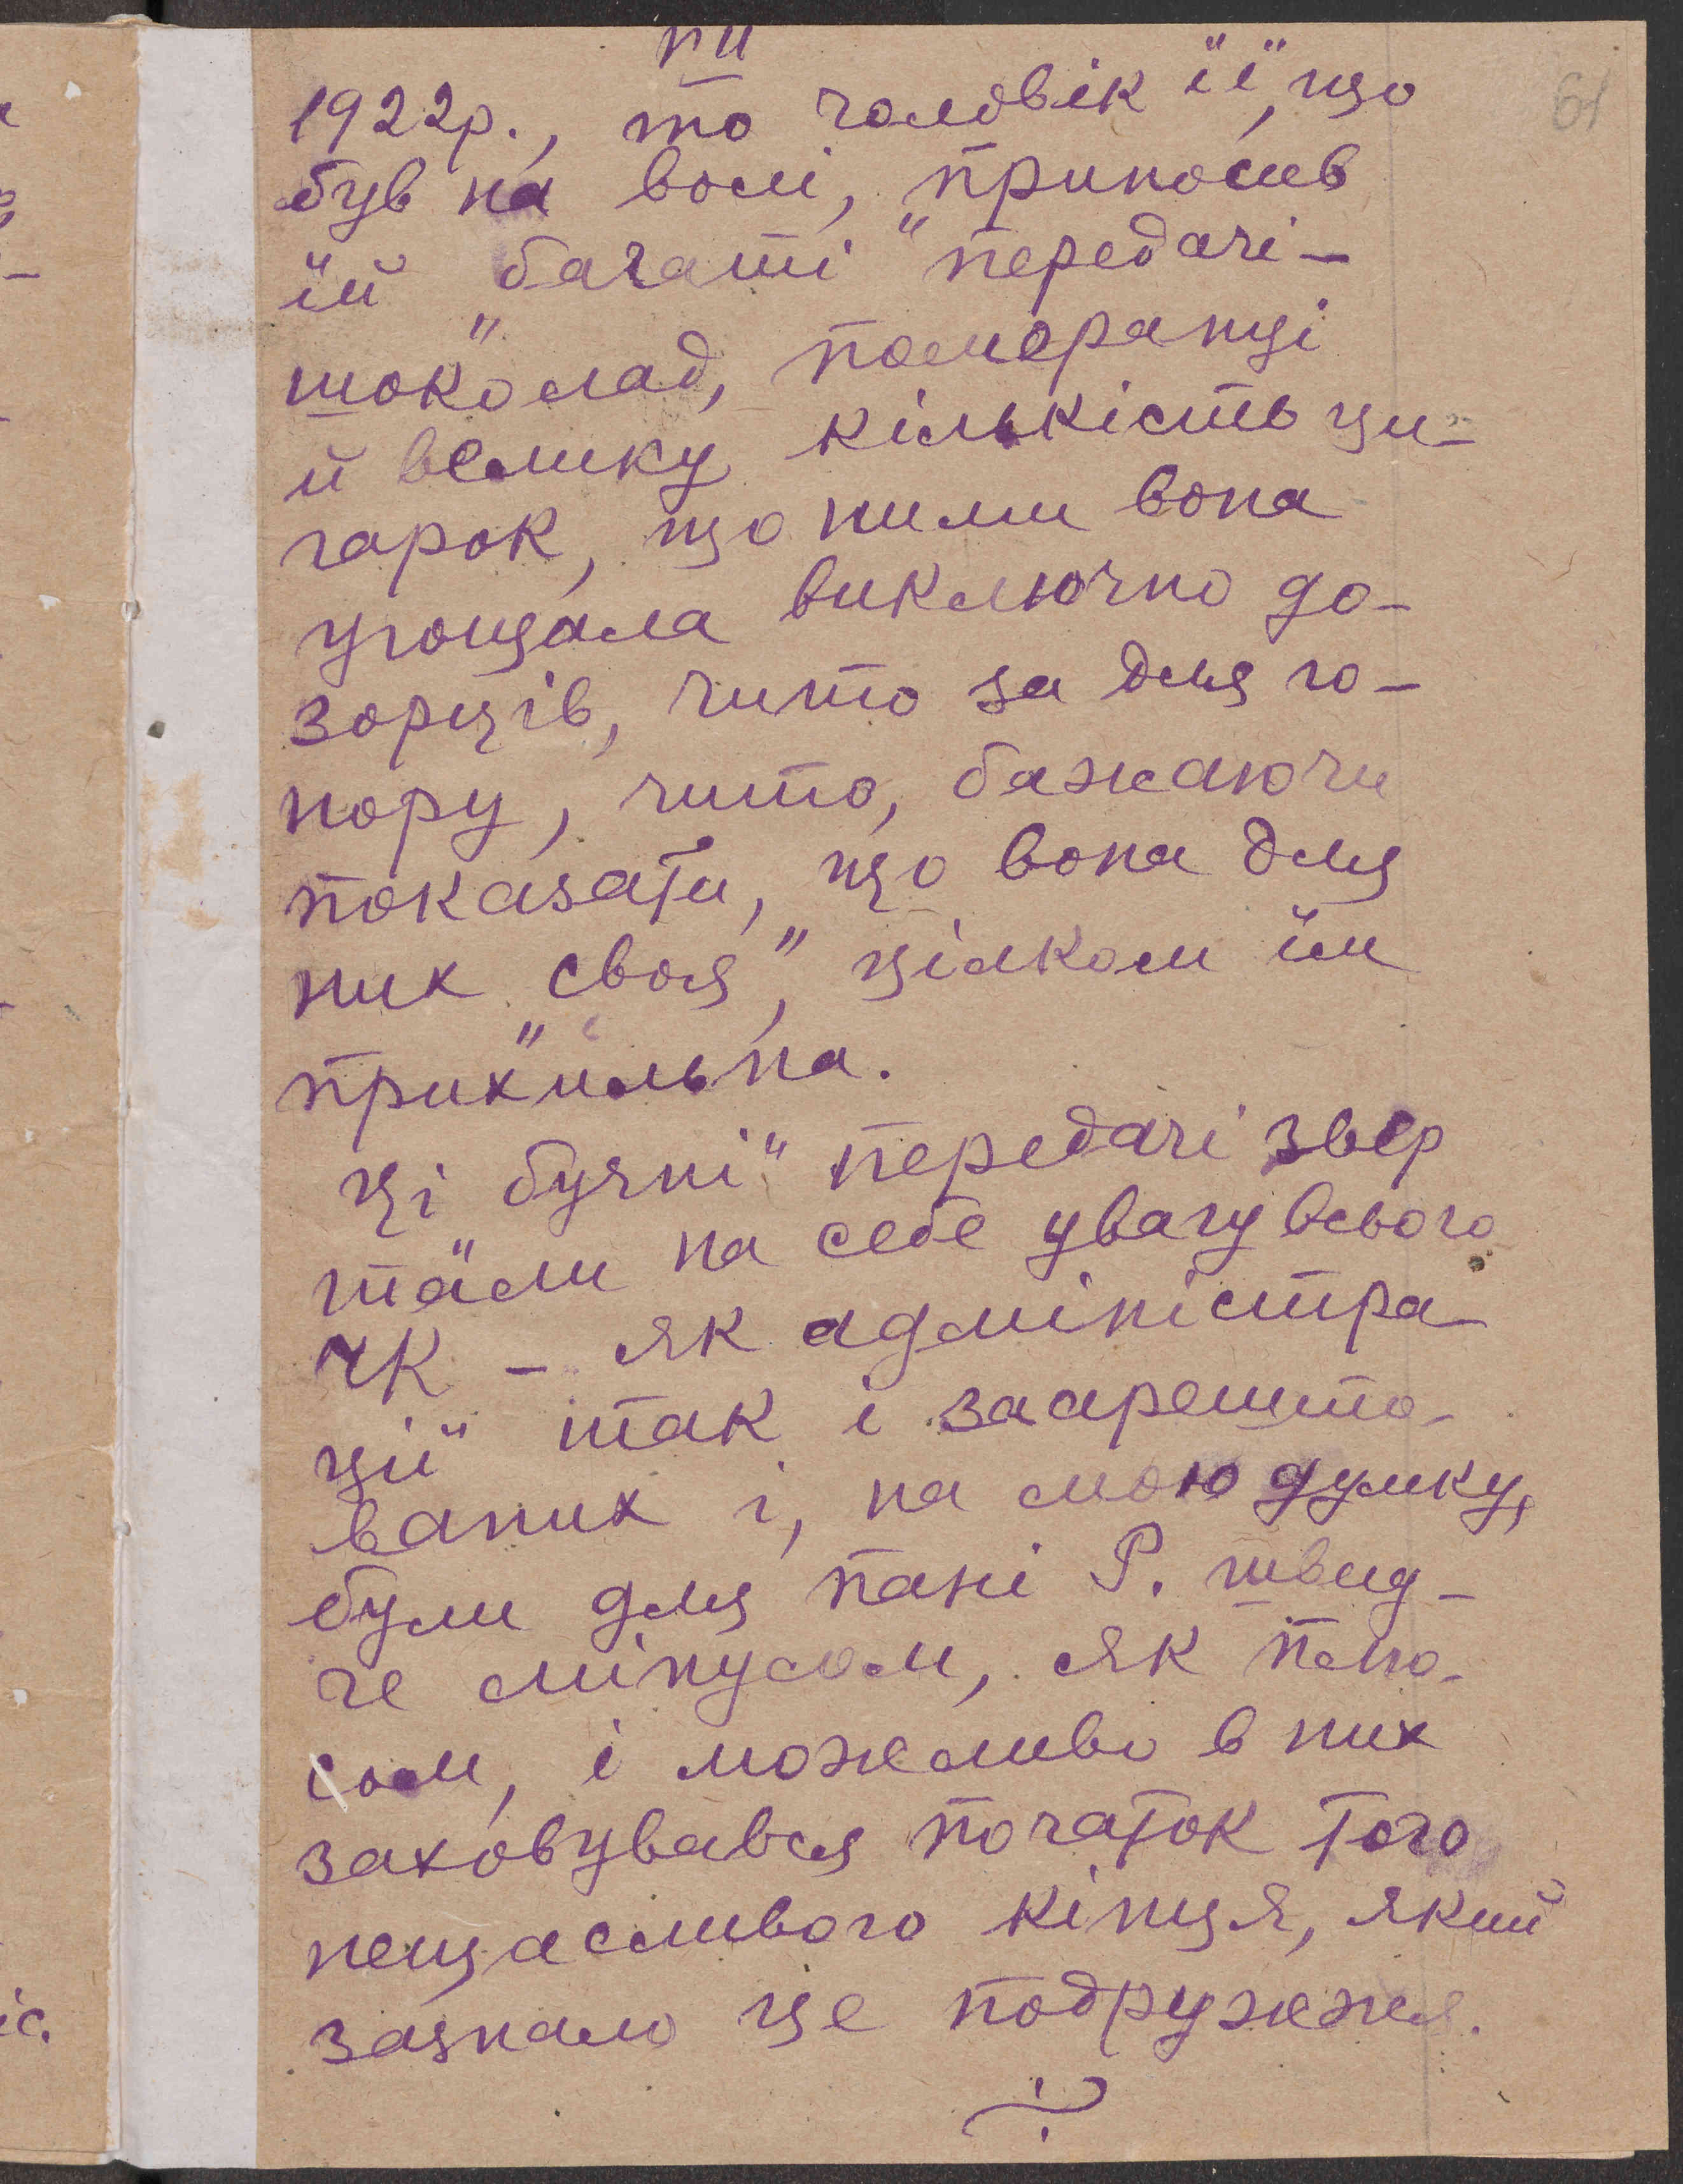 пи
1922р., то чоловік її, що
був на волі, приносив
їй „багаті“ передачі –
шоколад, помаранці
й велику кількість ци-
гарок, що ними вона
угощала виключно до-
зорців, чито за для го-
нору, чито, бажаючи
показати, що вона для
них „своя“, цілком їм
прихильна.
Ці „бучні“ передачі звер
тали на себе увагу всього
ЧК – як адміністра-
ції так і заарешто-
ваних і, на мою думку,
були для пані Р. швид-
че мінусом, як плю-
сом, і можливо в них
заховувався початок того
нещасливого кінця, який
зазнало це подружжя.
61
іс.